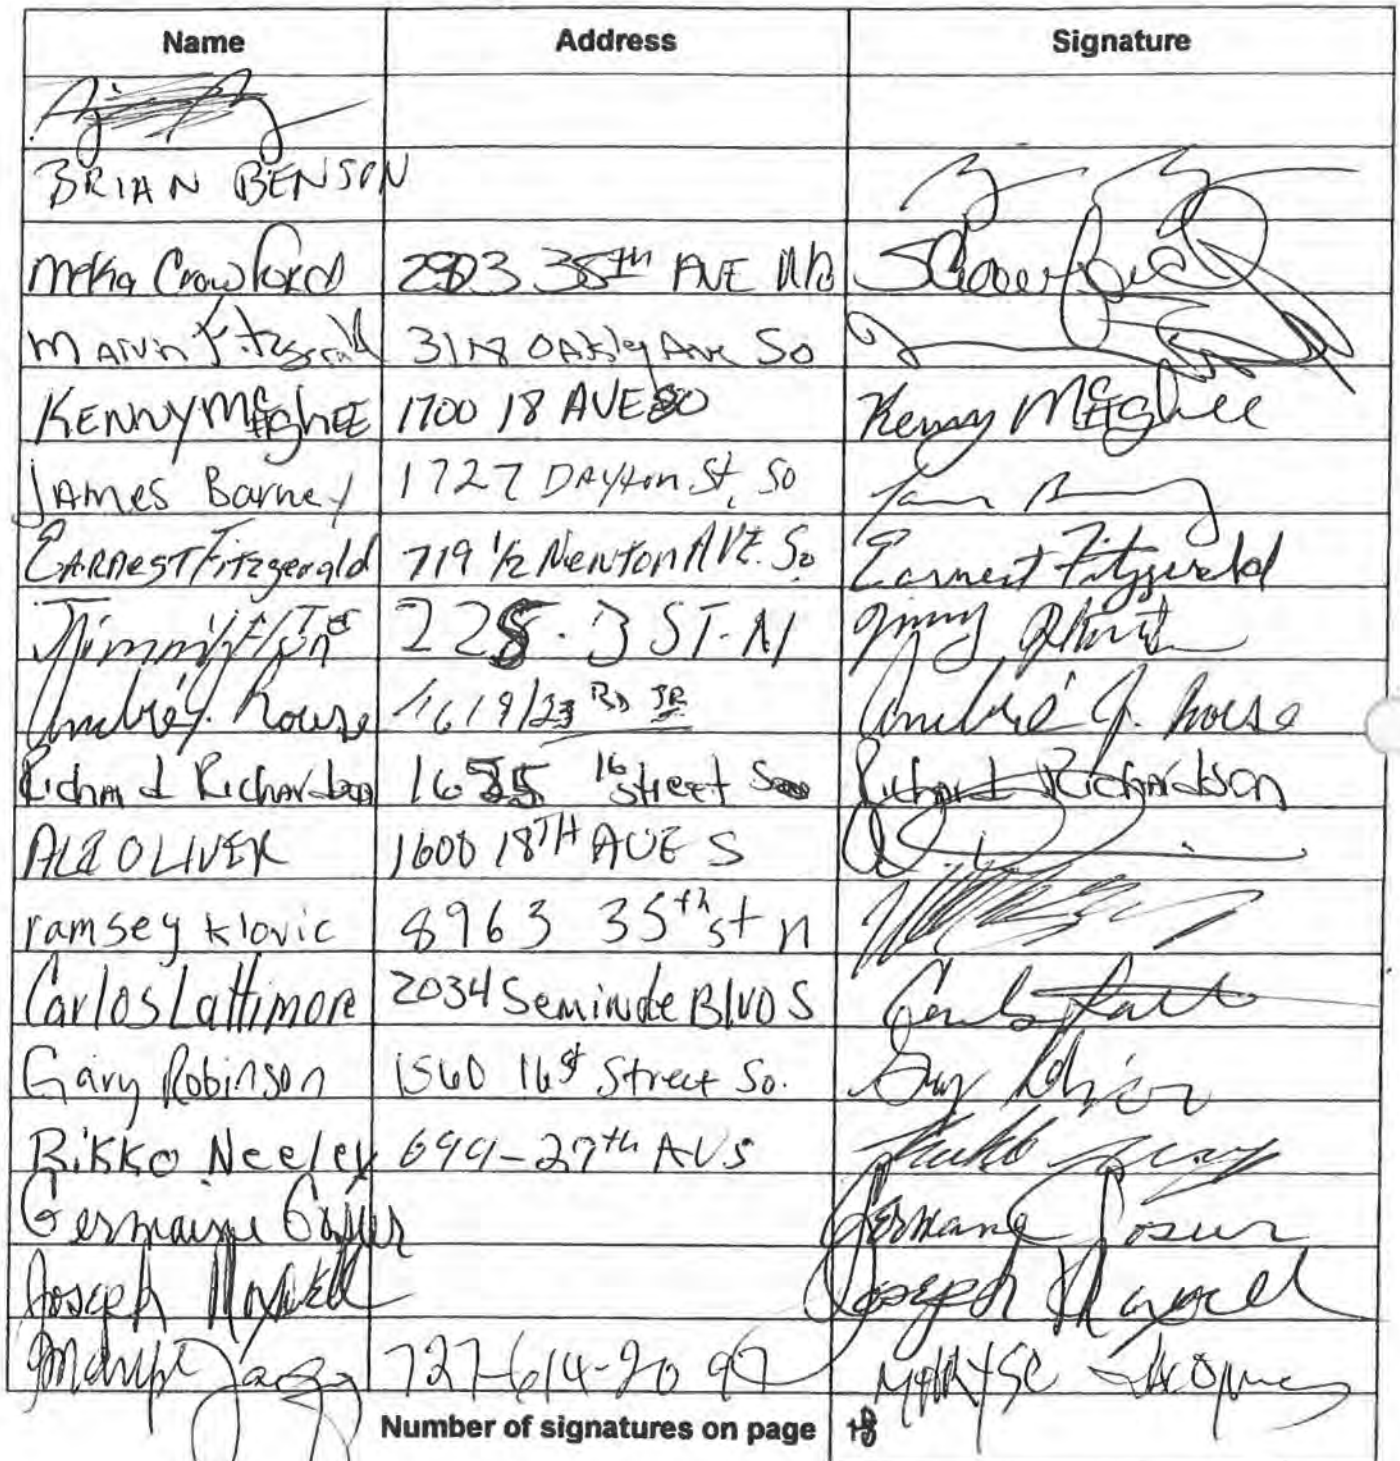 Name Address Signature
BRIAN BENSON
Meka Crawford 2923 35th AVE No SCrawford
Marvin Fitzgerald 3118 OAKley Ave So
KENNY McGhEE 1700 18 AVE SO Kenny McGhee
JAMES Barney 1727 DAyton St, So
EARNEST Fitzgerald 719 1/2 NewTon AVE. So Earnest Fitzgerald
228 - 3 ST. N
Andre J. Rouse 1619/23 RD Andre J. Rouse
Richard Richardson 1635 16 street Richard Richardson
OLIVER 1600 18TH AVE S
ramsey klovic 8963 35th st n
Carlos Lattimore 2034 Seminole BlVD S
Gary Robinson 1560 16st Street So. Gary Robinson
Rikko Neeley 699-27th AVS Rikko Neeley
Germaine Germaine
Joseph Maxwell Joseph Maxwell
727-614-20 97 MARYSE
Number of signatures on page 18